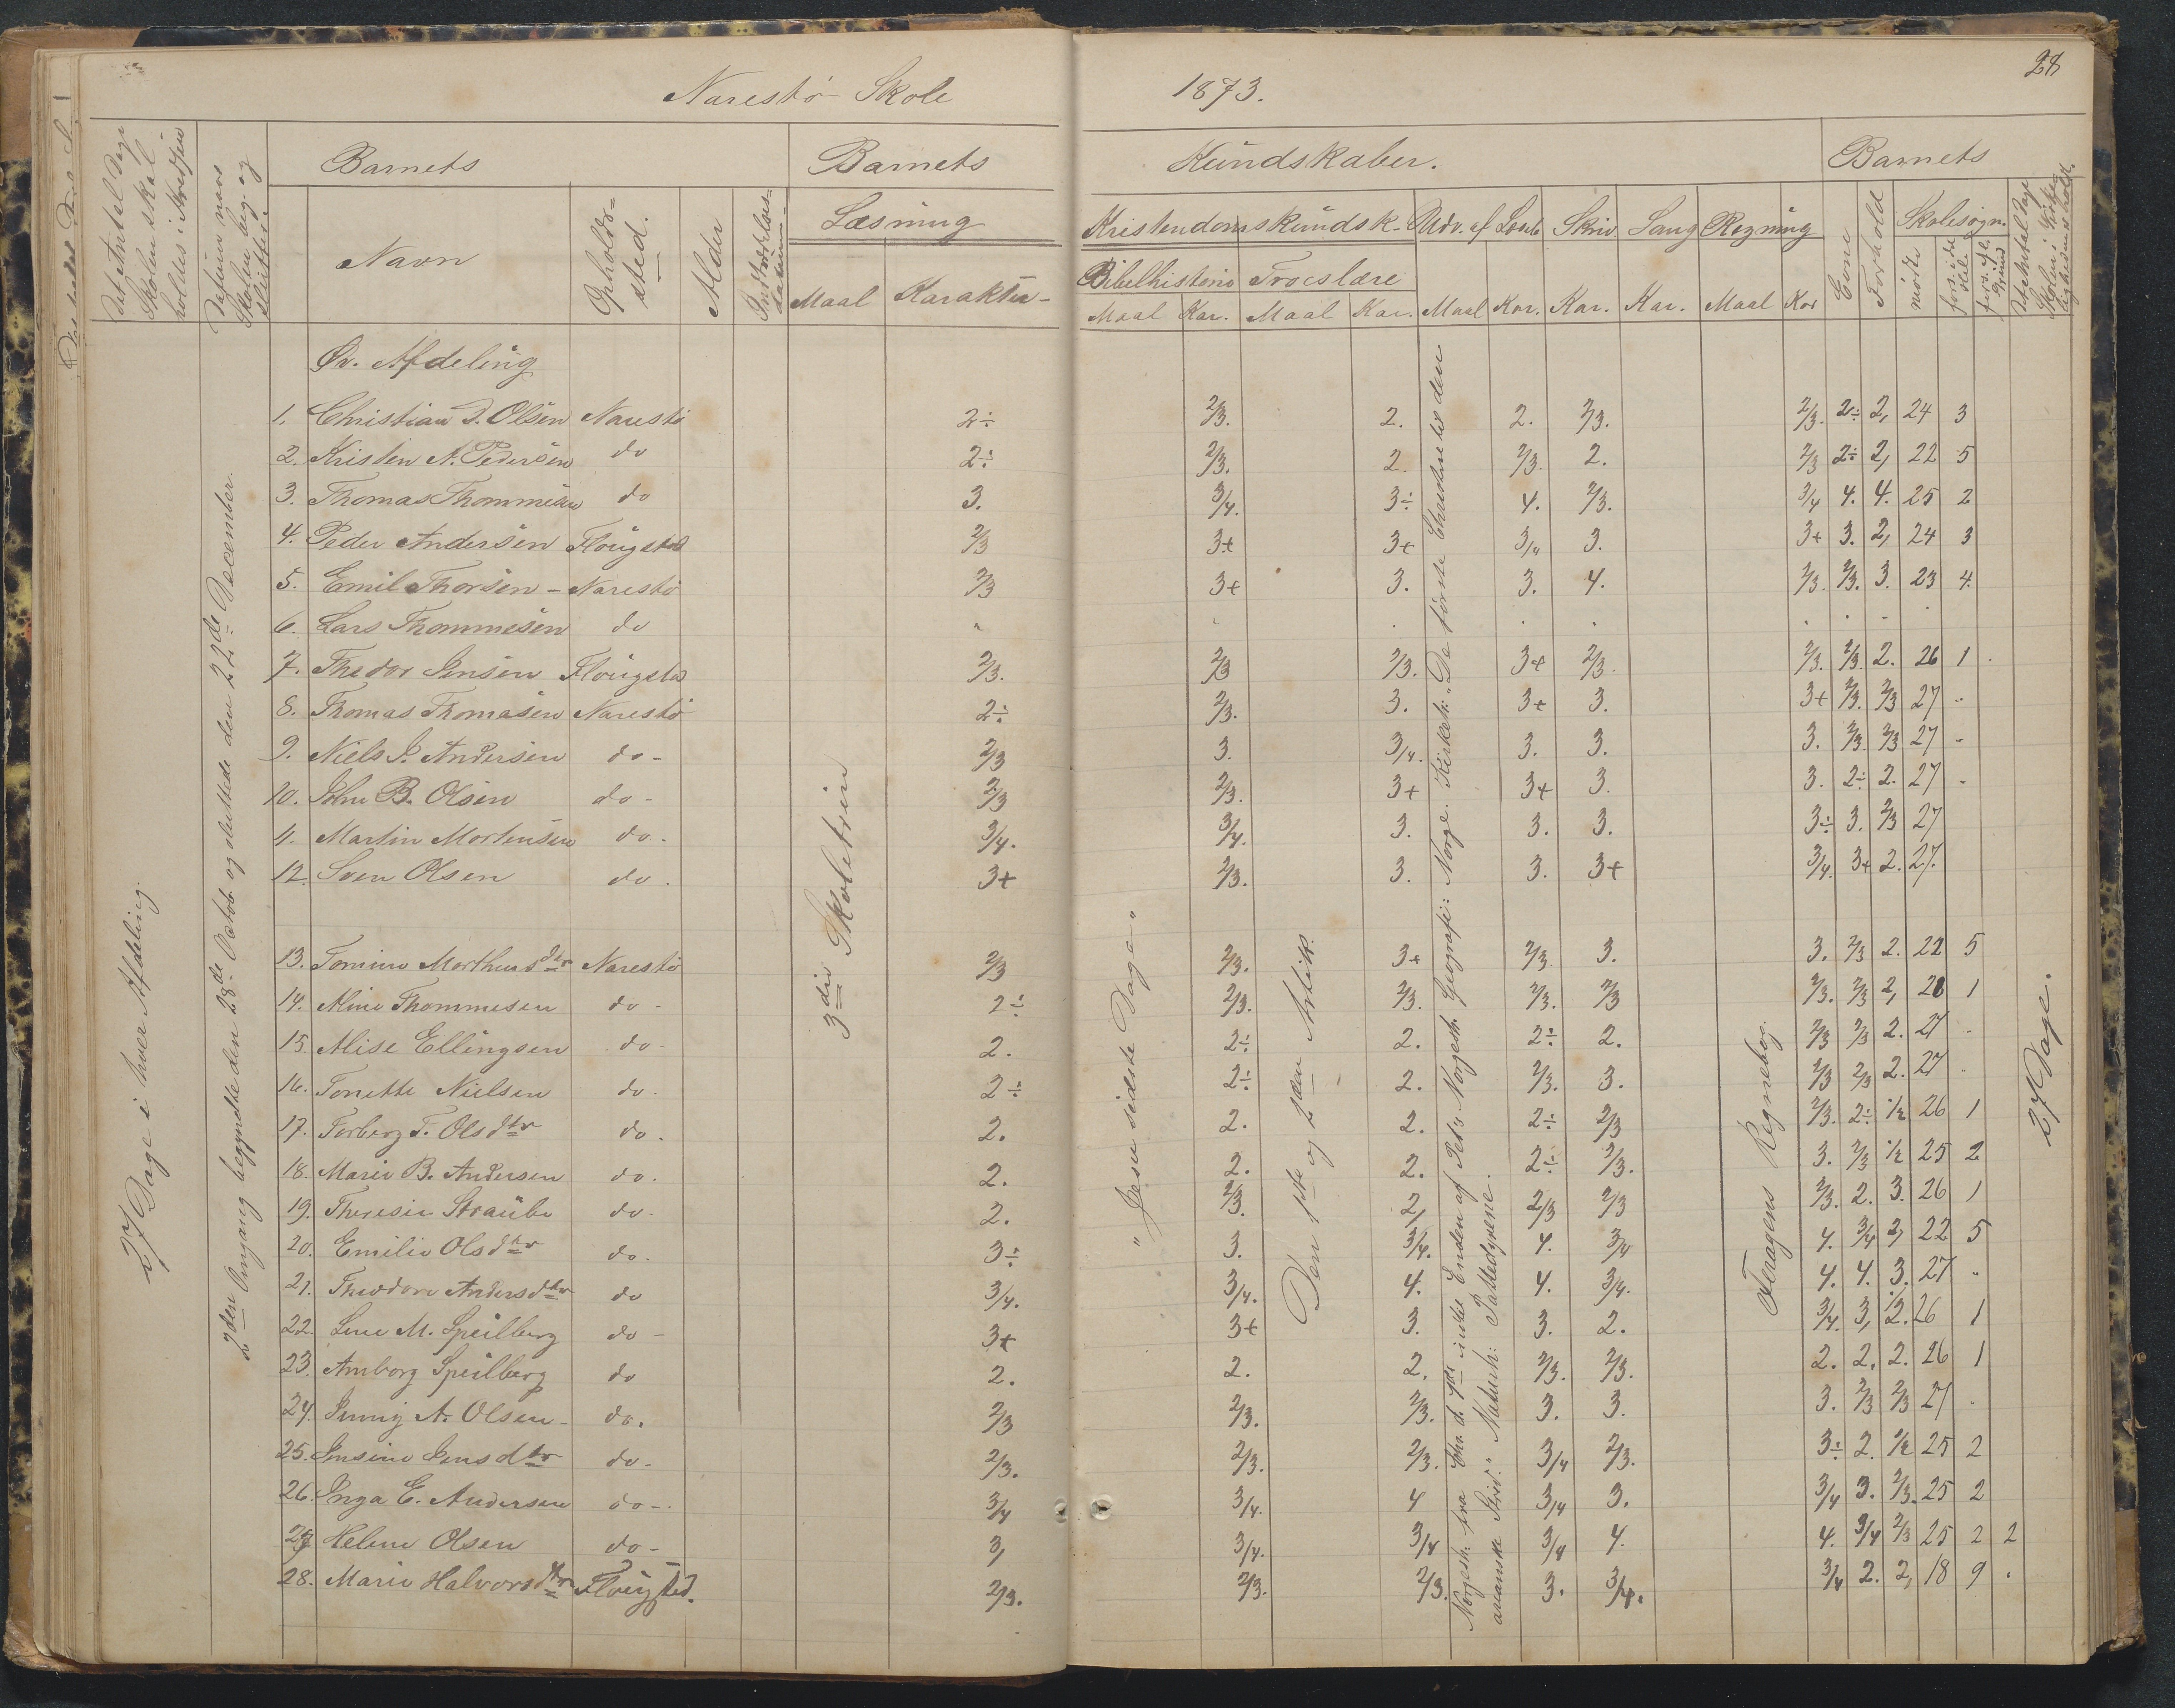 Narestø Skole
1873.
28
Det Antal Dage Skolen skal holdes i Kredsen
Datum naar Skolen beg. og sluttede.
Barnets
Navn
Opholds-sted.
Alder
Indtrædelses-datum
Barnets
Læsning
Maal Karakter
Kundskaber.
Kristendomskundsk. Udv. af Læseb. Skriv. Sang Regning
Bibelhistorie Troeslære
Maal Kar. Maal Kar. Maal Kar. Kar. Kar. Maal Kar
Barnets
Evne
Forhold
Skolesøgn.
mødte
fors. i det hele
fors. af Grund
Det Antal Dage Skolen i Virkeligheden er holdt.
27 Dage i hver Afdeling.
2den Omgang begyndte den 28de Octob. og sluttede den 22de December.
3die Skoletrin
"Jesu sidste Dage"
Den 1ste og 2den Artik.
Norgesh. fra Chr. d. 4de indtil Enden af Pet's Norgesh. Geografi: Norge. Kirkeh: "De første Christne til den
arianske Strid." Naturh: Pattedyrene.
Feragens Regnebog.
27 Dage.
Øv. Afdeling
1. Christian D. Olsen Narestø 2÷ 2/3. 2. 2. 2/3. 2/3. 2÷ 2, 24 3
2. Kristen A. Pedersen do 2÷ 2/3. 2. 2/3. 2. 2/3 2÷ 2, 22 5
3. Thomas Thommesen do 3. 3/4. 3÷ 4. 2/3. 3/4 4. 4. 25 2
4. Peder Andersen Flougstad 2/3 3+ 3+ 3/4 3. 3+ 3. 2, 24 3
5. Emil Thorsen - Narestø 2/3 3+ 3. 3. 4. 2/3. 2/3. 3. 23 4.
6. Lars Thommesen do
7. Thedor Jensen Flougstad 2/3. 2/3 2/3. 3+ 2/3. 2/3. 2/3. 2. 26 1.
8. Thomas Thomasen Narestø 2÷ 2/3. 3. 3+ 3. 3+ 2/3. 2/3 27 -
9. Niels J. Andersen do- 2/3 3. 3/4. 3. 3. 3. 2/3. 2/3 27 -
10. John B. Olsen do- 2/3 2/3. 3+ 3+ 3. 3. 2÷ 2. 27 -
11. Martin Mortensen do. 3/4. 3/4. 3. 3. 3. 3÷ 3. 2/3 27
12. Sven Olsen do. 3+ 2/3. 3. 3. 3+ 3/4. 3+ 2. 27.
13. Tomine Morthensdtr Narestø 2/3 2/3. 3+ 2/3 3. 3. 2/3 2. 22 5
14. Aline Thommesen do- 2÷ 2/3. 2/3. 2/3. 2/3 2/3. 2/3 2, 28 1
15. Alise Ellingsen do- 2. 2÷ 2. 2÷ 2. 2/3 2/3 2. 27 -
16. Tonette Nielsen do. 2÷ 2÷ 2. 2/3. 3. 2/3 2/3 2. 27 .
17. Torberg T. Olsdtr do. 2. 2. 2. 2÷ 2/3 2/3. 2÷ 1/2 26 1
18. Marie B. Andersen do. 2. 2. 2. 2÷ 2/3. 3. 2/3 1/2 25 2
19. Theresie Straube do- 2. 2/3. 2, 2/3 2/3 2/3. 2. 3. 26 1
20. Emilie Olsdtr do. 3÷ 3. 3/4. 4. 3/4 4. 3/4 2, 22 5
21. Theodore Andersdtr do 3/4. 3/4. 4. 4. 3/4. 4. 4. 3. 27 "
22. Lene M. Speilberg do- 3+ 3+ 3. 3. 2. 3/4. 3, 1/2. 26 1
23. Amborg Speilberg do 2. 2. 2. 2/3. 2/3. 2. 2. 2. 26 1
24. Jenny A. Olsen - do. 2/3 2/3. 2/3. 3. 3. 3. 2/3 2/3 27 .
25. Jensine Jensdtr do- 2/3. 2/3. 2/3. 3/4 2/3. 3÷ 2. 1/2 25 2
26. Inga E. Andersen do- 3/4 3/4. 4 3/4 3. 3/4 3. 2/3. 25 2
27 Helene Olsen do- 3, 3/4. 3/4 3/4 4. 4. 3/4 2/3 25 2 2
28. Marie Halvorsdtr Flougsted. 2/3. 2/3. 2/3. 3. 3/4. 3/4 2. 2, 18 9 .